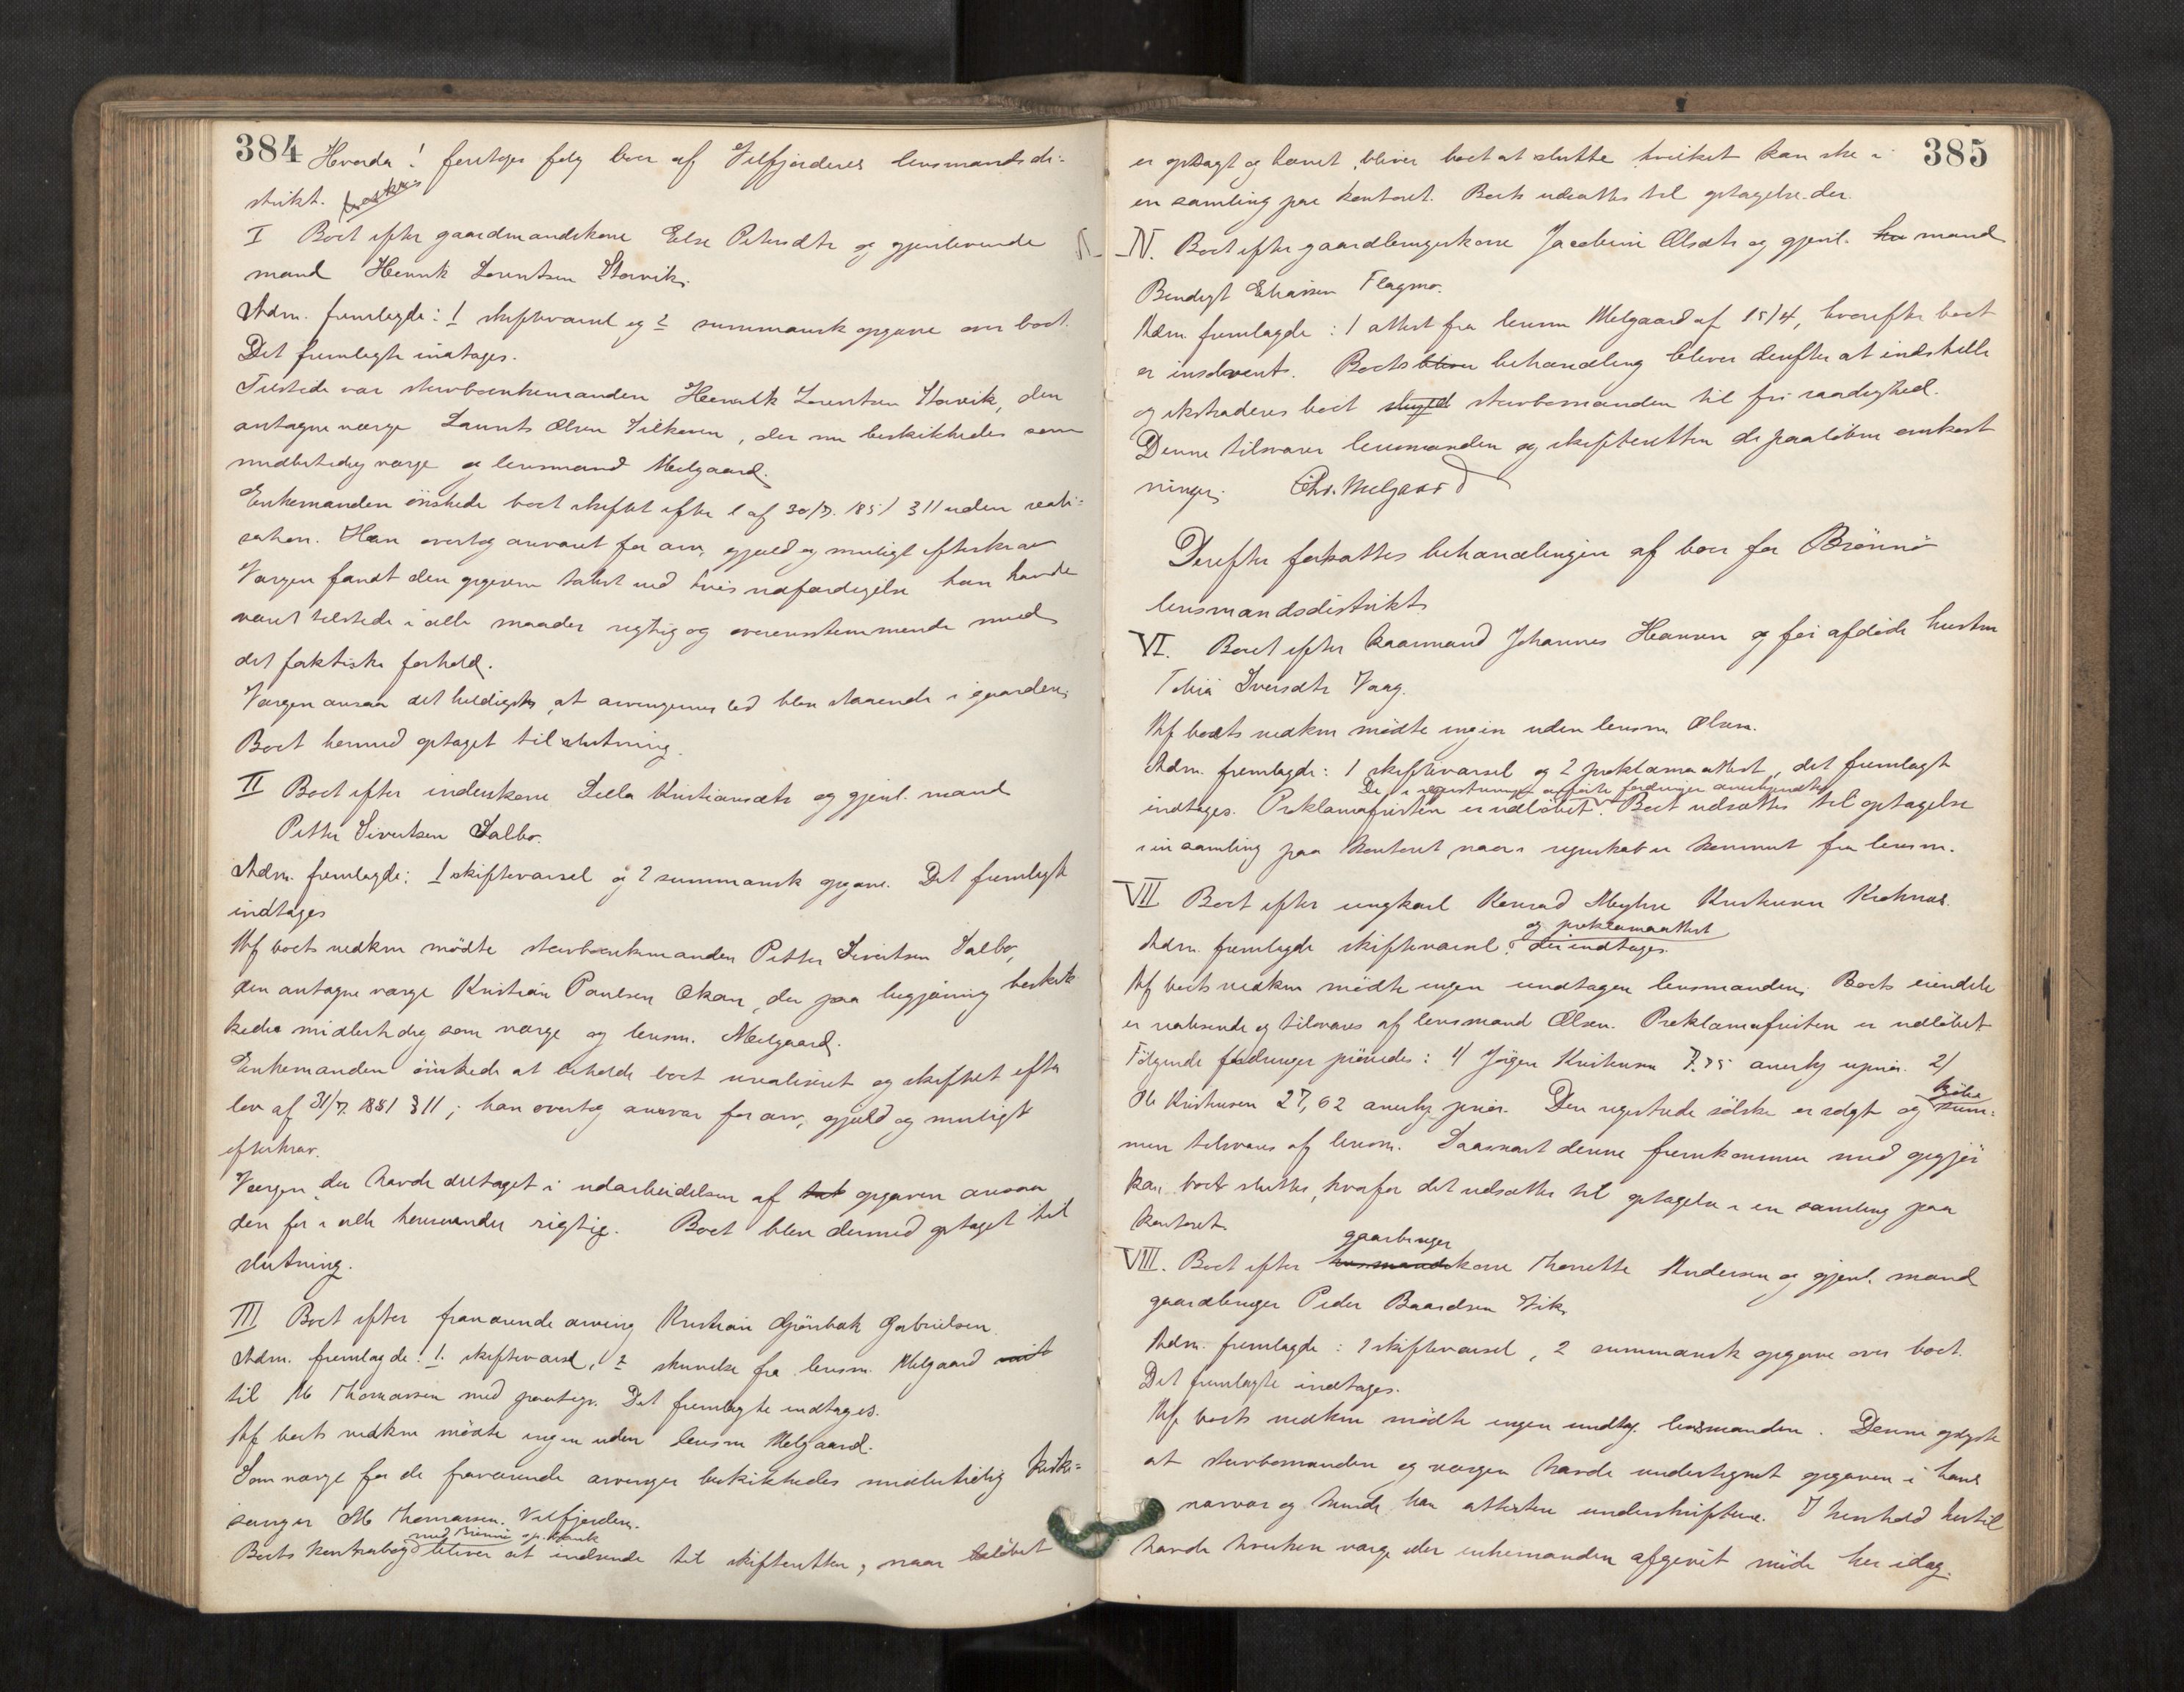 384
Hverda! foretoges følg boer af Velfjordens lensmandsdi-
strikt.
I Boet efter gaardmandskone Else Petersdtr og gjenlevende
mand Henrik Lorentsen Storvik.
Adm. fremlagde: 1 skiftevarsel og 2 summarisk opgave over boet.
Det fremlagte indtages.
Tilstede var stervboenkemanden Henrik Lorentsen Storvik, den
antagne værge Laurits Olsen, der nu beskikkedes som
midlertidig værge og lensmand Melgaard.
Enkemanden ønskede boet skiftet efter l af 30/7. 1851 § 11 uden reali-
sation. Han overtog ansvaret for arv, gjæld og muligt efterkrav
Værgen fandt den opgivne takst ved hvis udfærdigelse han havde
været tilstede i alle maader rigtig og overensstemmende med
det faktiske forhold.
Værgen ansaa det heldigste, at arvingernes lod blev staaende i gaarden.
Boet hermed optaget til slutning.
II Boet efter inderskone Sella Kristiansdtr og gjenl. mand
Petter Sivertsen Salbo.
Adm. fremlagde: 1 skiftevarsel og 2 summarisk opgave. Det fremlagt
indtages
Af boets vedkm mødte stervboenkemanden Petter Sivertsen Salbo,
den antagne værge Kristian Paulsen, der paa begjæring beskik-
kedes midlertidig som værge og lensm. Melgaard.
Enkemanden ønskede at beholde boet urealiseret og skiftet efter
lov af 31/7. 1851 § 11; han overtog ansvar for arv, gjæld og muligt
efterkrav.
Værgen, der havde deltaget i udarbeidelsen af opgaven ansaa
den for i alle henseender rigtig. Boet blev dermed optaget til
slutning.
III Boet efter fraværende arving Kristian Grønbæk Gabrielsen.
Adm. fremlagde: 1. skiftevarsel, 2 skrivelse fra lensm. Melgaard
til M Thomassen med paategn. Det fremlagte indtages.
Af boets vedkm mødte ingen uden lensm Melgaard.
Som værge for de fraværende arvinger beskikkedes midlertidig kirke-
sanger M Thomassen. Velfjorden.
med Brønnø sp. bank
Boets kontrabog bliver at indsende til skifteretten, naar beløbet
385
er opsagt og hævet, bliver boet at slutte hvilket kan ske i
en samling paa kontoret. Boets udsættes til optagelse der.
IV. Boet efter gaardbrugerkone Jacobine Olsdtr og gjenl. mand
Bendigt Eliassen Flagmo.
Adm. fremlagde: 1 attest fra lensm Melgaard af 15/4, hvorefter boet
er insolvent. Boets behandling bliver derefter at indstille
og ekstraderes boet stervbomanden til fri raadighed.
Denne tilsvarer lensmanden og skifteretten de paaløbne omkost
ninger. Chr. Melgaard
Derefter fortsattes behandlingen af boer for Brønnø
lensmandsdistrikt.
VI. Boet efter kaarmand Johannes Hansen og før afdøde hustru
Iversdtr Vaag.
Af boets vedkm mødte ingen uden lensm. Olsen.
Adm. fremlagde: 1 skiftevarsel og 2 proklamaattest, det fremlagt
De i registreringen anførte fordringer anerkjendtes
indtages. Proklamafristen er udløbet. Boet udsættes til optagelse
i en samling paa kontoret naar regnskab er kommet fra lensm.
VII Boet efter ungkarl Konrad Kristensen
og proklamaattest
Adm. fremlagde skiftevarsel. der indtages.
Af boets vedkm mødte ingen undtagen lensmanden. Boets eiendele
er realiserede og tilsvares af lensmand Olsen. Proklamafristen er udløbet
Følgende fordringer prøvedes: 1/ Jørgen Kristensen 7.75 anerkj uprior. 2/
Ole Kristensen 27,62 anerkj. prior. Den registrerede er solgt og kjøbe
sum-
men tilsvares af lensm. Saasnart denne fremkommer med opgjør
kan boet sluttes, hvorfor det udsættes til optagelse i en samling paa
kontoret.
gaardbruger
VIII. Boet efter husmandskone Andersen og gjenl. mand
gaardbruger Peder Baardsen Vik.
Adm. fremlagde: 1 skiftevarsel, 2 summarisk opgave over boet.
Det fremlagte indtages.
Af boets vedkm mødte ingen undtag. lensmanden. Denne oplyste
at stervbomanden og værgen havde undertegnet opgaven i hans
nærvær og kunde han attestere underskriftene. I henhold hertil
havde hverken værge eller enkemanden afgivet møde her idag.